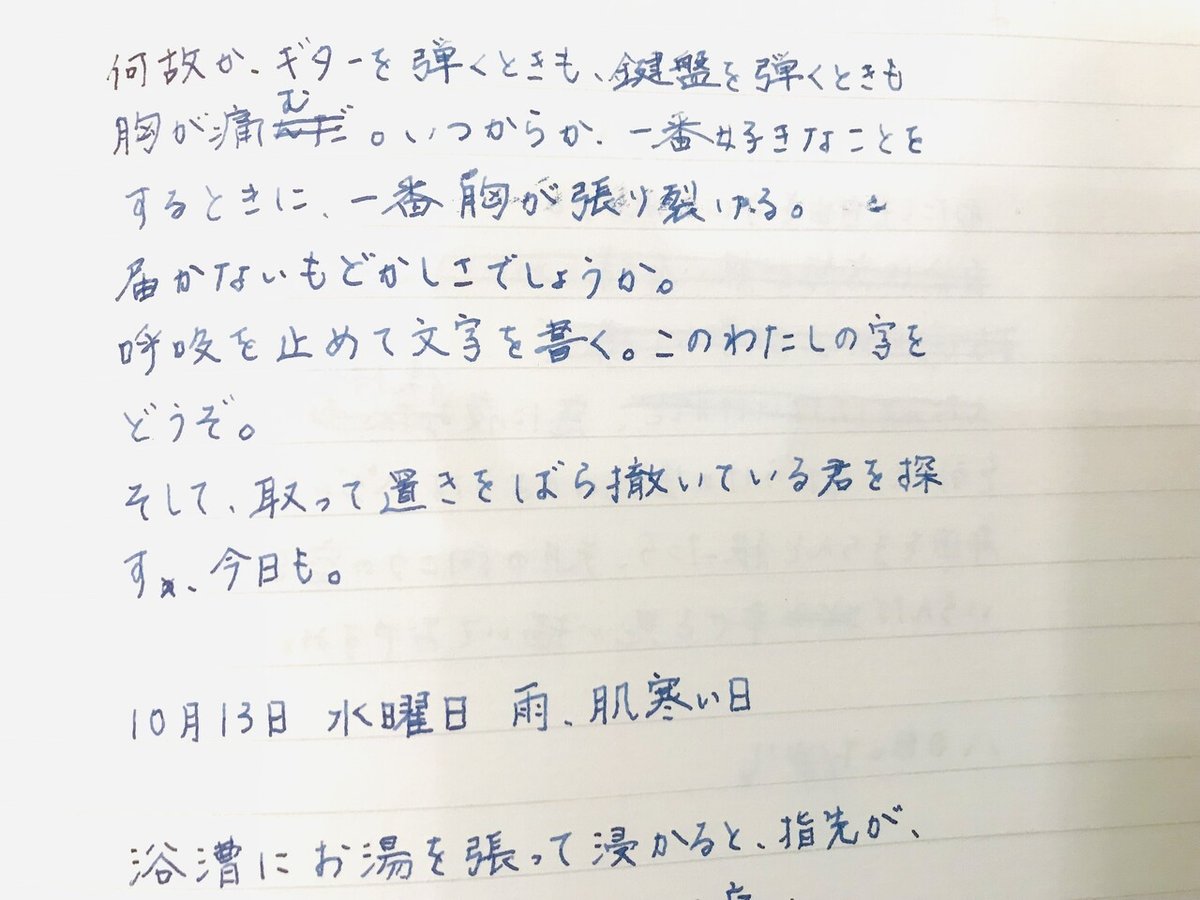 何故か、ギターを弾くときも、鍵盤を弾くときも
胸が痛む。いつからか、一番好きなことを
するときに、一番胸が張り裂ける。
届かないもどかしさでしょうか。
呼吸を止めて文字を書く。このわたしの字を
どうぞ。
そして、取って置きをばら撒いている君を探
す、今日も。
10月13日 水曜日 雨、肌寒い日
浴漕にお湯を張って浸かると、指先が、